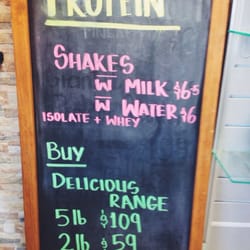 PROTEIN
SHAKES
W MILK $6.5
W WATER $6
ISOLATE + WHEY
BUY
DELICIOUS
RANGE
5 lb $109
2 lb $59